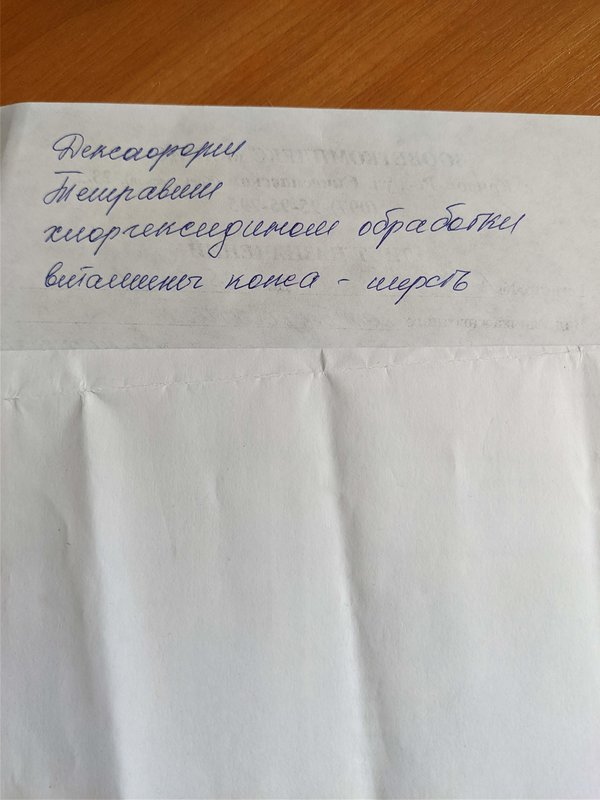 Дексафорт
Тетравит
хлоргексидином обработки
витамины кожа - шерсть